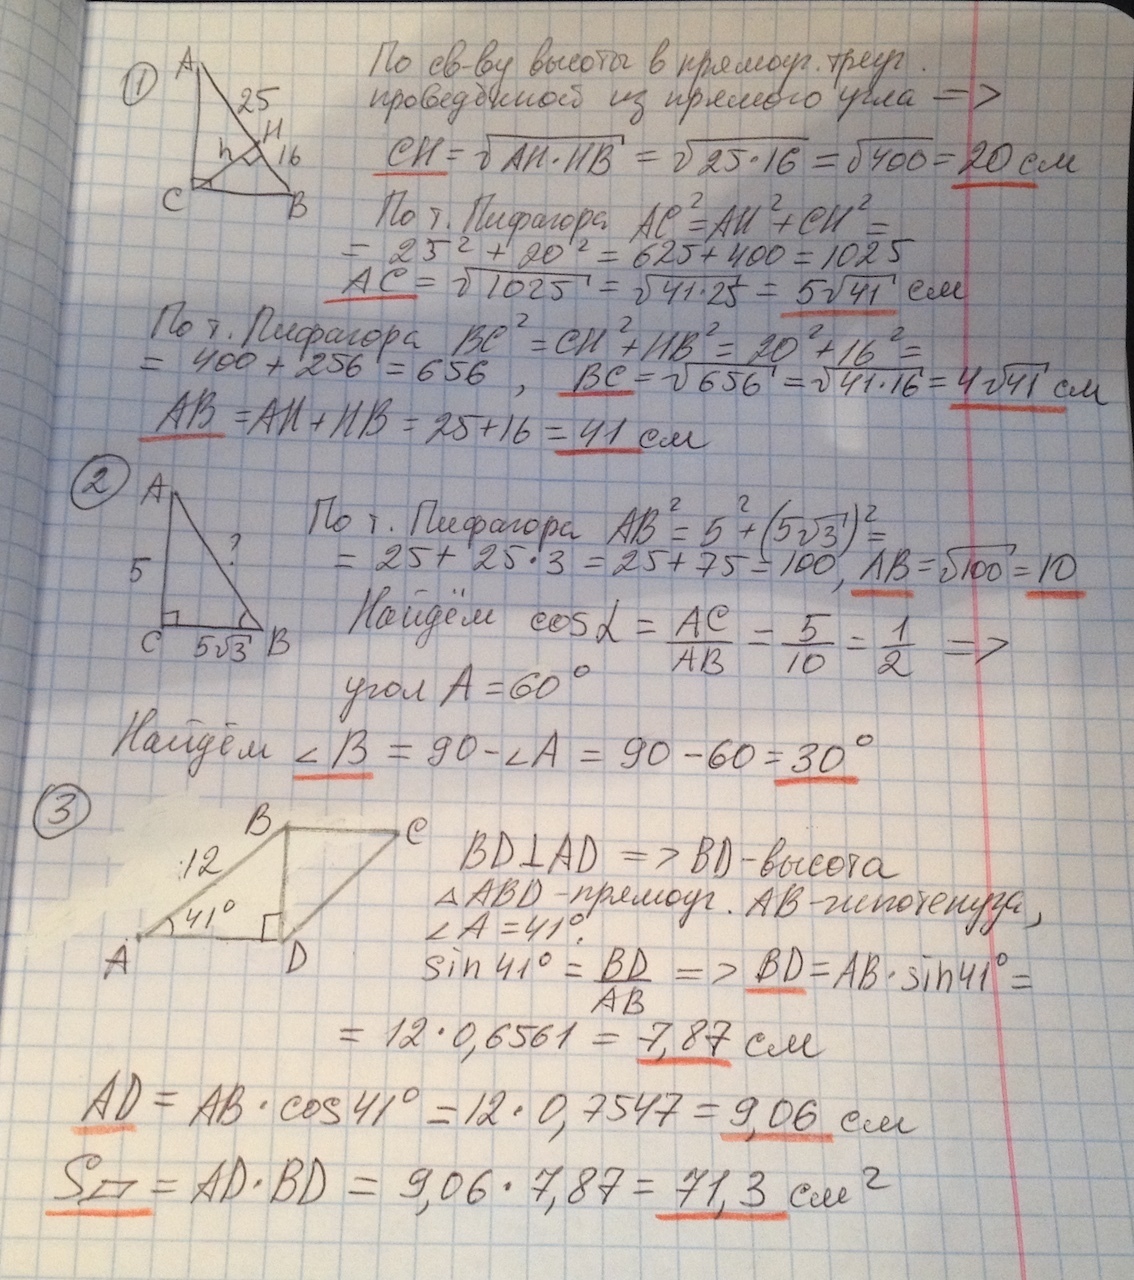 1
A
25
H
h
16
C
B
По св-ву высоты в прямоуг. треуг.
проведённой из прямого угла =>
CH = √AH·HB = √25·16 = √400 = 20 см
По т. Пифагора AC² = AH² + CH² =
= 25² + 20² = 625 + 400 = 1025
AC = √1025 = √41·25 = 5√41 см
По т. Пифагора BC² = CH² + HB² = 20² + 16² =
= 400 + 256 = 656 , BC = √656 = √41·16 = 4√41 см
AB = AH + HB = 25 + 16 = 41 см
2
A
?
5
C
5√3
B
По т. Пифагора AB² = 5² + (5√3)² =
= 25 + 25·3 = 25 + 75 = 100, AB = √100 = 10
Найдём cos α = AC/AB = 5/10 = 1/2 =>
угол A = 60°
Найдём ∠B = 90 - ∠A = 90 - 60 = 30°
3
B
C
12
41°
A
D
BD ⊥ AD => BD - высота
△ABD - прямоуг. AB - гипотенуза,
∠A = 41°.
sin 41° = BD/AB => BD = AB · sin 41° =
= 12 · 0,6561 = 7,87 см
AD = AB · cos 41° = 12 · 0,7547 = 9,06 см
S▱ = AD · BD = 9,06 · 7,87 = 71,3 см²